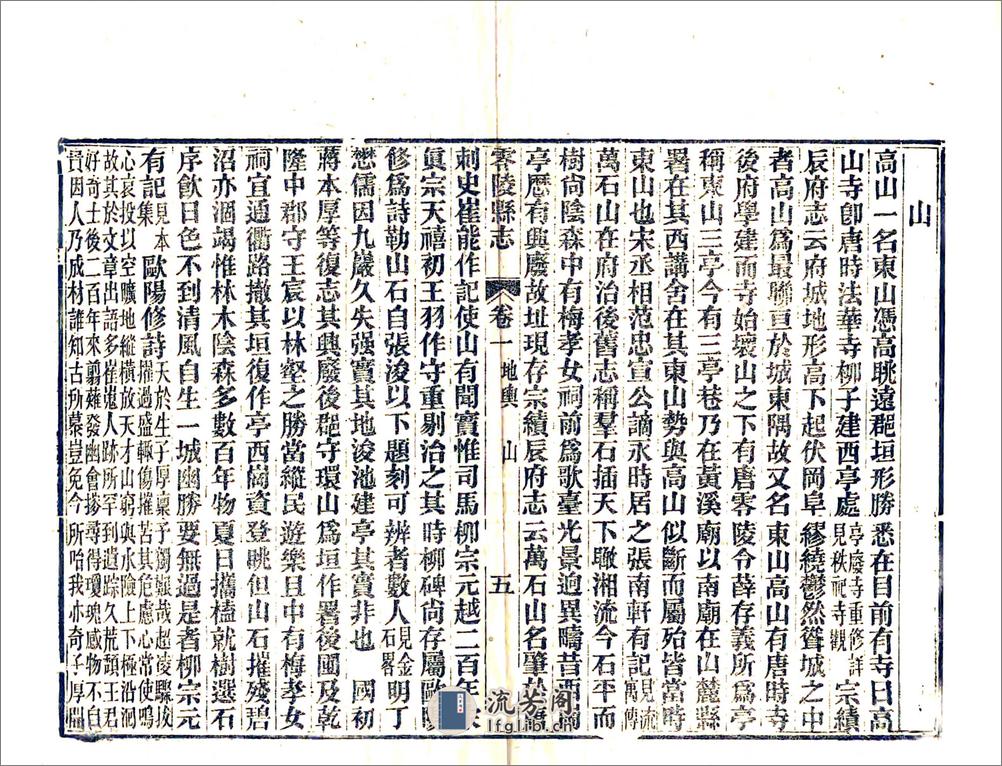 山
高山一名東山憑高眺遠郡垣形勝悉在目前有寺曰高
山寺卽唐時法華寺柳子建西亭處亭廢寺重修詳見秩祀寺觀 宗績
辰府志云府城地形高下起伏岡阜繆繞鬱然聳城之中
者高山爲最聯亘於城東隅故又名東山高山有唐時寺
後府學建而寺始壞山之下有唐零陵令薛存義所爲亭
稱東山三亭今有三亭巷乃在黃溪廟以南廟在山麓縣
署在其西講舍在其東山勢與高山似斷而屬殆皆當時
東山也宋丞相范忠宣公謫永時居之張南軒有記見流寓傳
萬石山在府治後舊志稱羣石插天下瞰湘流今石平而
樹尙陰森中有梅孝女祠前爲歌臺光景迥異疇昔西
亭歷有興廢故址現存宗績辰府志云萬石山名肇於
零陵縣志 卷一 地輿 山 五
刺史崔能作記使山有聞實惟司馬柳宗元越二百年
眞宗天禧初王羽作守重剔治之其時柳碑尙存屬歐陽
修爲詩勒山石自張浚以下題刻可辨者數人見金石畧 明丁
懋儒因九巖久失强實其地浚池建亭其實非也 國初
蔣本厚等復志其興廢後郡守環山爲垣作署後園及乾
隆中郡守王宸以林壑之勝當縱民遊樂且中有梅孝女
祠宜通衢路撤其垣復作亭西崗資登眺但山石摧殘碧
沼亦涸竭惟林木陰森多數百年物夏日攜榼就樹選石
序飲日色不到清風自生一城幽勝要無過是者柳宗元
有記見本集 歐陽修詩天於生子厚稟予獨艱哉超凌驟拔擢過盛輒傷摧苦其危慮心常使鳴
心哀投以空曠地縱橫放天才山窮與水險上下極沿洄
故其於文章出語多崔嵬人跡所罕到遺踪久荒頹王君
好奇士後二百年來翦薙發幽薈搜尋得瓊瑰感物不自
貴因人乃成材誰知古所慕豈免今所咍我亦奇子厚